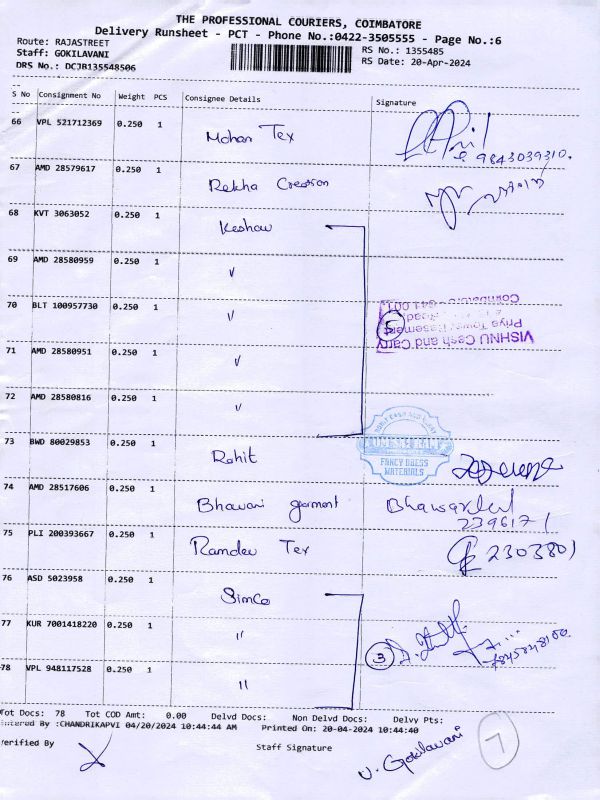 THE PROFESSIONAL COURIERS, COIMBATORE
Delivery Runsheet - PCT - Phone No.:0422-3505555 - Page No.:6
Route: RAJASTREET
Staff: GOKILAVANI
DRS No.: DCJB135548506
RS No.: 1355485
RS Date: 20-Apr-2024
S No Consignment No Weight PCS Consignee Details Signature
66 VPL 521712369 0.250 1 Mohan Tex
9843039310.
67 AMD 28579617 0.250 1 Rekha Creation
68 KVT 3063052 0.250 1 Keshav
69 AMD 28580959 0.250 1
70 BLT 100957730 0.250 1
5
VISHNU Cash and Carry
Priya Tower Basement
71 AMD 28580951 0.250 1
72 AMD 28580816 0.250 1
73 BWD 80029853 0.250 1 Rohit
FANCY DRESS
MATERIALS
74 AMD 28517606 0.250 1 Bhavani garment
2396171
75 PLI 200393667 0.250 1 Ramdev Tex 2303801
76 ASD 5023958 0.250 1 Simco
77 KUR 7001418220 0.250 1 "
3
78 VPL 948117528 0.250 1 "
Tot Docs: 78 Tot COD Amt: 0.00 Delvd Docs: Non Delvd Docs: Delvy Pts:
Entered By :CHANDRIKAPVI 04/20/2024 10:44:44 AM Printed On: 20-04-2024 10:44:40
Verified By
Staff Signature
V. Gokilavani
7